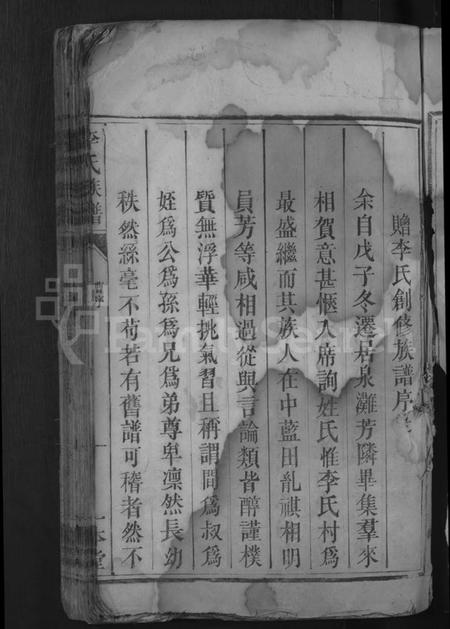 贈李氏創修族譜序
余自戊子冬遷居泉灘芳隣畢集羣來
相賀意甚愜入席詢姓氏惟李氏村爲
最盛繼而其族人在中藍田亂祺相明
員芳等咸相過從與言論類皆醇謹樸
質無浮華輕挑氣習且稱謂間爲叔爲
姪爲公爲孫爲兄爲弟尊卑凛然長幼
秩然絲毫不苟若有舊譜可稽者然不
李氏族譜
一本堂
FamilySearch